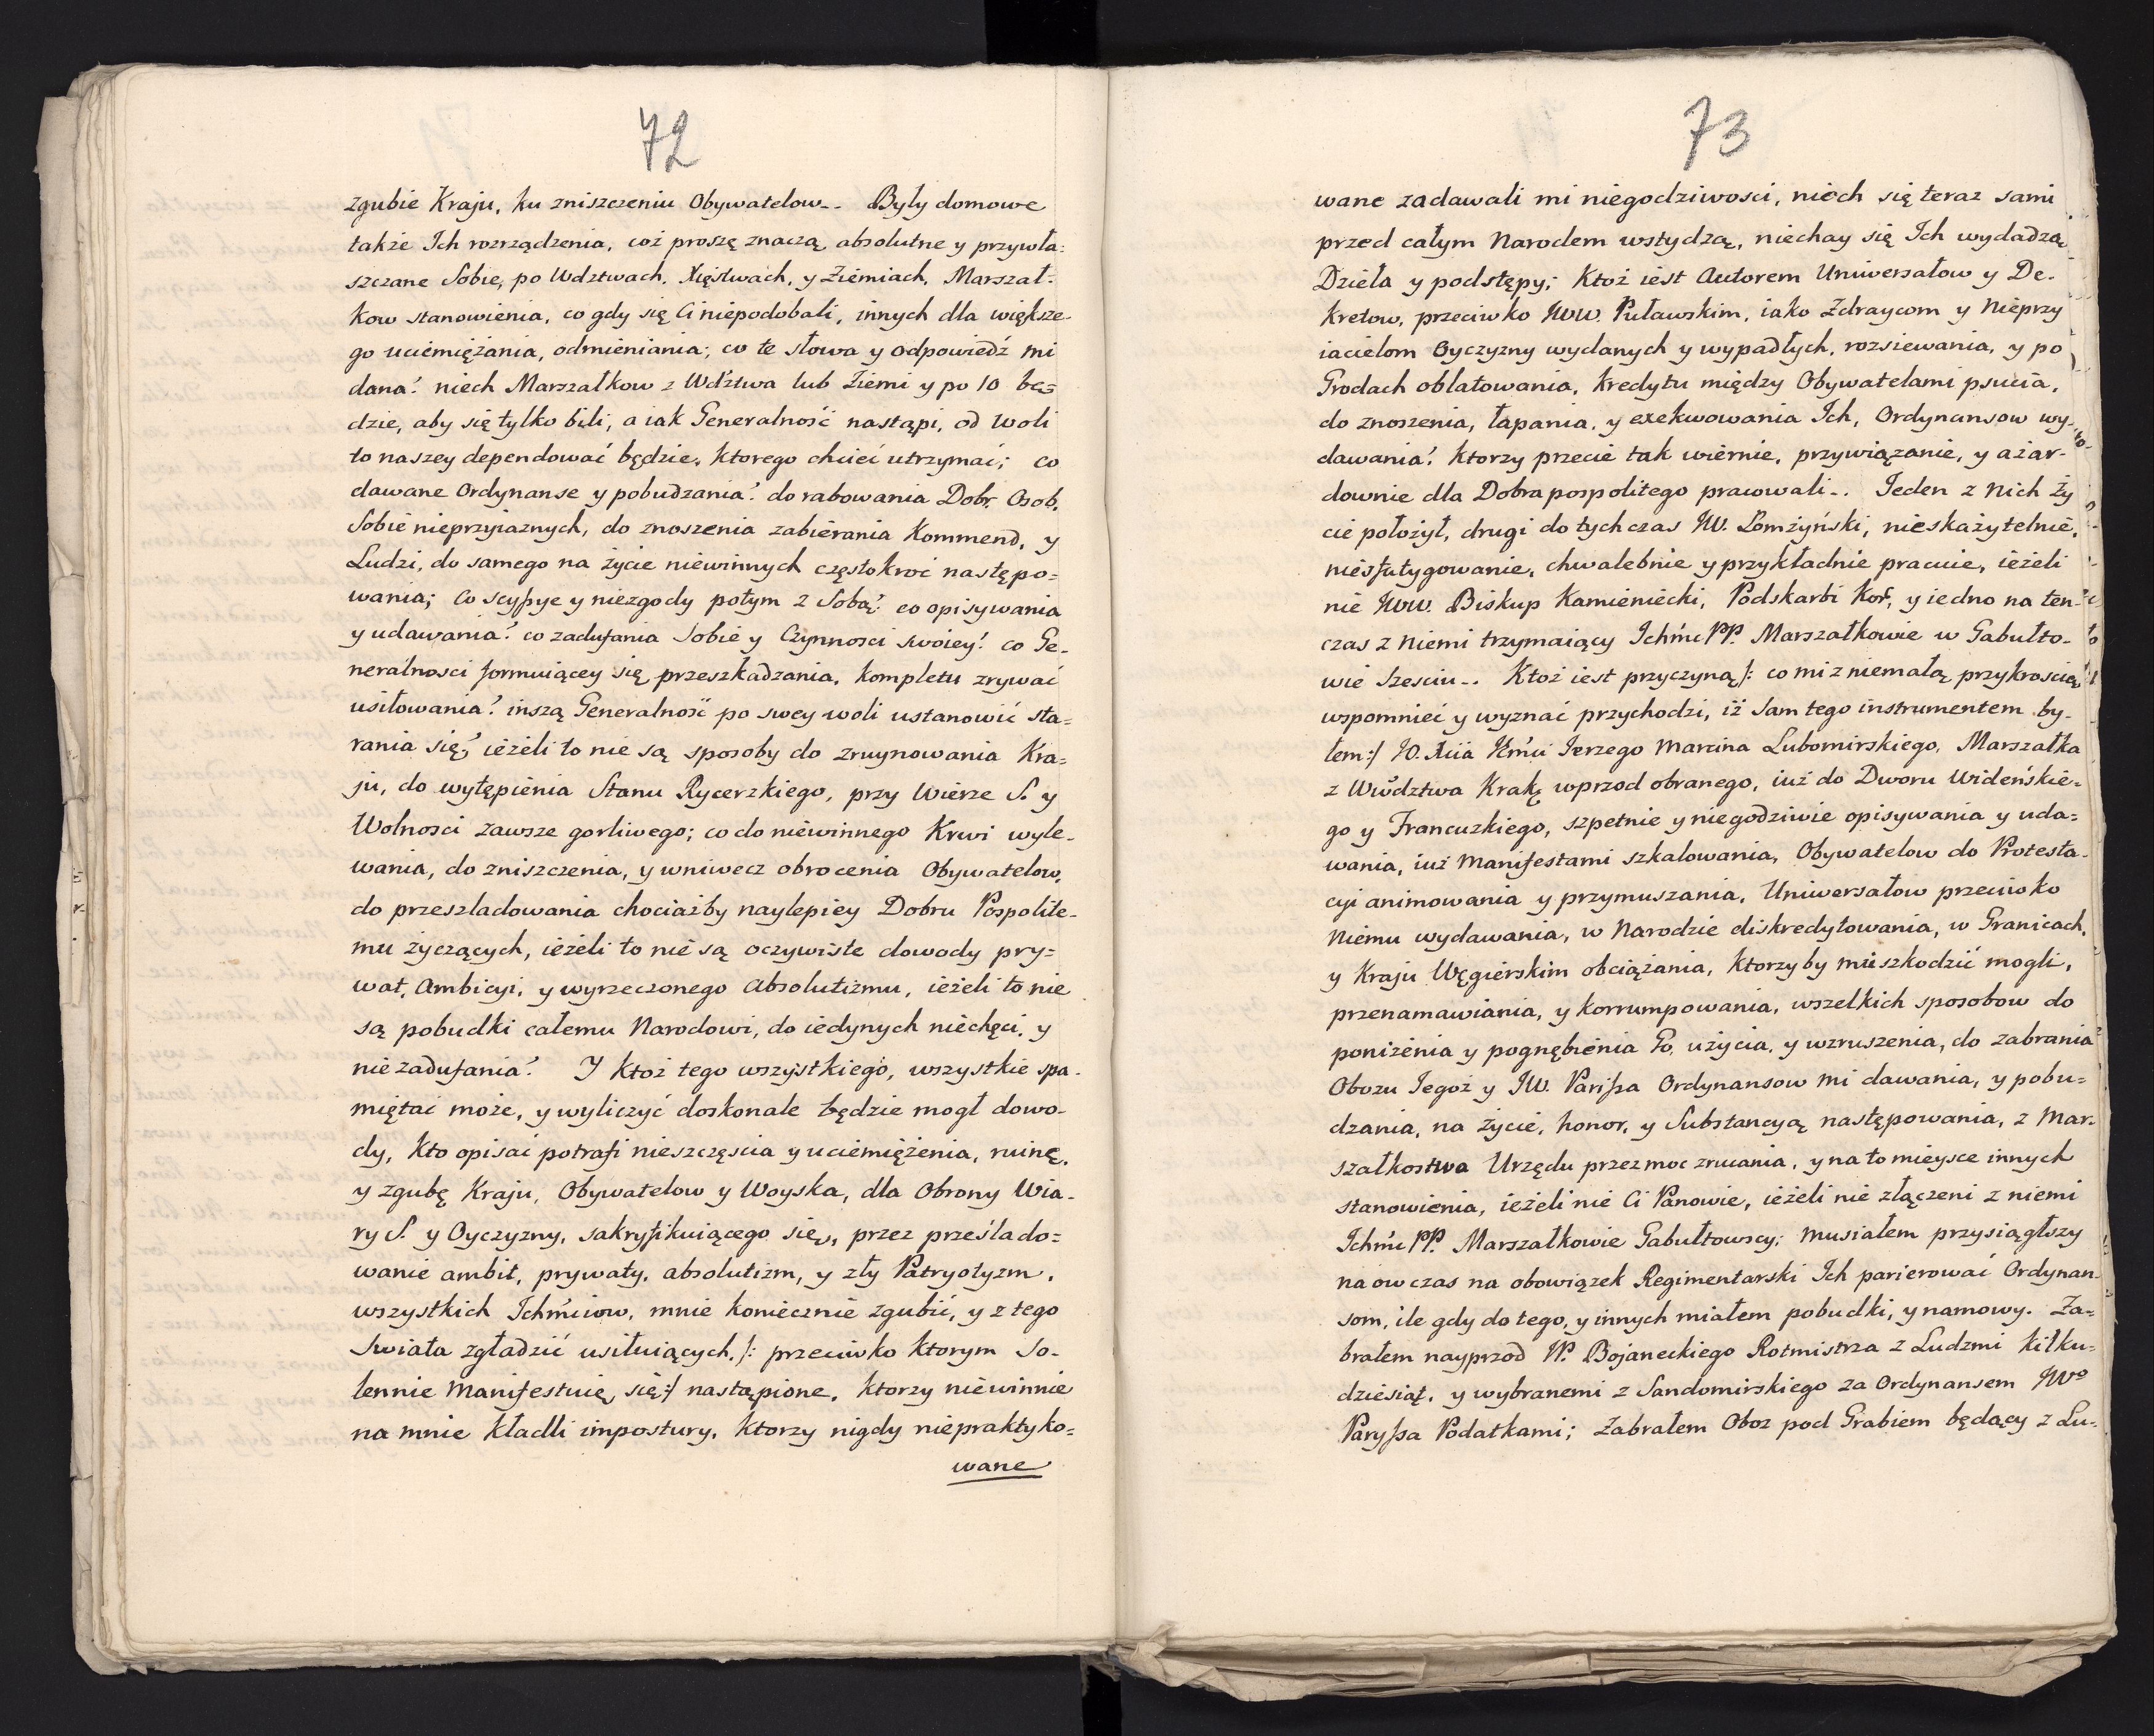 72
zgubie Kraju, ku zniszczeniu Obywatelow.. Były domowe
także Ich rozrządzenia, coż proszę znaczą, absolutne y przywła:
szczane Sobie, po Wdztwach, Xięstwach, y Ziemiach, Marszał-
kow stanowienia, co gdy się Ci niepodobali, innych dla większe-
go uciemiężania, odmieniania; co te słowa y odpowiedź mi
dana? niech Marszałkow z Wdztwa lub Ziemi y po 10 bę=
dzie, aby się tylko bili, a iak Generalność nastąpi, od Woli
to naszey dependować będzie, Ktorego chcieć utrzymać; co
dawane Ordynanse y pobudzania? do rabowania Dobr, Osob,
Sobie nieprzyiaznych, do znoszenia zabierania Kommend, y
Ludzi, do samego na życie niewinnych częstokroć następo=
wania; Co scyssye y niezgody potym z Sobą? co opisywania
y udawania? co zadufania Sobie y Czynnosci swoiey? co Ge-
neralnosci formuiącey się przeszkadzania, kompletu zrywać
usiłowania? inszą Generalność po swey woli ustanowić sta=
rania się? ieżeli to nie są sposoby do zruynowania Kra=
ju, do wytępienia Stanu Rycerzkiego, przy Wierze S. y
Wolnosci zawsze gorliwego; co do niewinnego Krwi wyle-
wania, do zniszczenia, y wniwecz obrocenia Obywatelow,
do przeszladowania chociażby naylepiey Dobru Pospolite-
mu życzących, ieżeli to nie są oczywiste dowody pry=
wat, Ambicyi, y wyrzeczonego Absolutizmu, ieżeli to nie
są pobudki całemu Narodowi, do iedynych niechęci, y
nie zadufania? Y Ktoż tego wszystkiego, wszystkie spa-
miętać może, y wyliczyć doskonale będzie mogł dowo-
dy, Kto opisać potrafi nieszczęscia y uciemiężenia, ruinę,
y zgubę Kraju, Obywatelow y Woyska, dla Obrony Wia-
ry S. y Oyczyzny, sakryfikuiącego się, przez prześlado=
wanie ambit, prywaty, absolutizm, y zły Patryotyzm,
wszystkich Ichmciow, mnie koniecznie zgubić, y z tego
Swiata zgładzić usiłuiących, /: przeciwko ktorym So-
lennie Manifestuię się :/ nastąpione. Ktorzy niewinnie
na mnie kładli impostury, Ktorzy nigdy niepraktyko=
wane
73
wane zadawali mi niegodziwosci, niech się teraz sami
przed całym Narodem wstydzą, niechay się Ich wydadzą
Dzieła y podstępy; Ktoż iest Autorem Uniwersałow y De-
kretow, przeciwko JWW. Puławskim, iako Zdraycom y Nieprzy
iacielom Oyczyzny wydanych y wypadłych, rozsiewania, y po
Grodach oblatowania, Kredytu między Obywatelami psucia,
do znoszenia, łapania, y exekwowania Ich, Ordynansow wy-
dawania? Ktorzy przecie tak wiernie, przywiązanie, y ażar-
downie dla Dobra pospolitego pracowali.. Jeden z Nich ży
cie położył, drugi do tych czas JW. Łomżyński, nieskażytelnie,
niesfatygowanie, chwalebnie y przykładnie pracuie, ieżeli
nie JWW. Biskup Kamieniecki, Podskarbi Kor, y iedno na ten-
czas z Niemi trzymaiący Ichmć PP. Marszałkowie w Gabułto-
wie Szesciu.. Ktoż iest przyczyną /: co mi z niemałą przykroscią
wspomnieć y wyznać przychodzi, iż Sam tego instrumentem by-
łem :/ JO. Xcia Jmci Jerzego Marcina Lubomirskiego, Marszałka
z Wwdztwa Krak. wprzod obranego, iuż do Dworu Wideńskie=
go y Francuzkiego, szpetnie y niegodziwie opisywania y uda=
wania, iuż Manifestami szkalowania, Obywatelow do Protesta-
cyi animowania y przymuszania, Uniwersałow przeciwko
Niemu wydawania, w Narodzie diskredytowania, w Granicach,
y Kraju Węgierskim obciążania, Ktorzy by mu szkodzić mogli,
przenamawiania, y korrumpowania, wszelkich sposobow do
poniżenia y pognębienia Go, użycia, y wzruszenia, do zabrania
Obozu Jegoż y JW. Parissa Ordynansow mi dawania, y pobu=
dzania, na życie, honor, y Substancyą następowania, z Mar-
szałkostwa Urzędu przez moc zrucania, y na to mieysce innych
stanowienia, ieżeli nie Ci Panowie, ieżeli nie złączeni z niemi
Ichmć PP. Marszałkowie Gabułtowscy; Musiałem przysiągłszy
na ow czas na obowiązek Regimentarski Ich parierować Ordynan-
som, ile gdy do tego, y innych miałem pobudki, y namowy. Za=
brałem nayprzod W. Bojaneckiego Rotmistrza z Ludzmi kilku=
dziesiąt, y wybranemi z Sandomirskiego za Ordynansem JWo
Paryssa Podatkami; Zabrałem Oboz pod Grabiem będący z Lu-